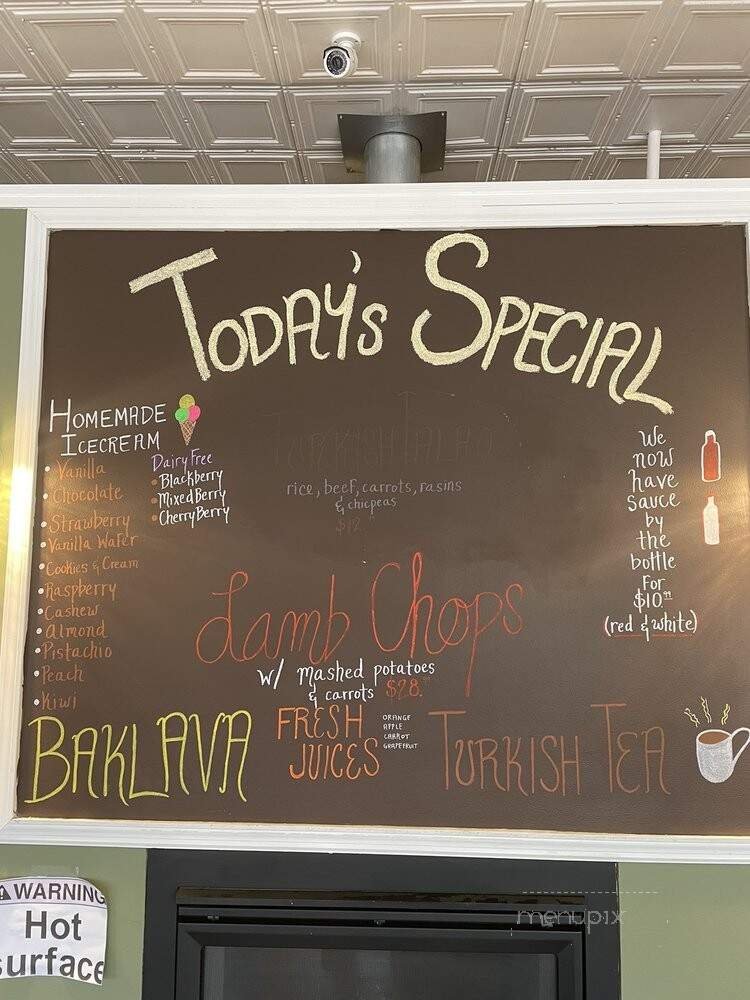 Today's Special
Homemade
Icecream
• Vanilla
• Chocolate
• Strawberry
• Vanilla Wafer
• Cookies & Cream
• Raspberry
• Cashew
• Almond
• Pistachio
• Peach
• Kiwi
Dairy Free
• Blackberry
• Mixed Berry
• Cherry Berry
Turkish
rice, beef, carrots, rasins
& chicpeas
Lamb Chops
w/ Mashed potatoes
& carrots $28.⁹⁹
We
now
have
sauce
by
the
bottle
for
$10.⁹⁹
(red & white)
Baklava
Fresh
Juices
Orange
Apple
Carrot
Grapefruit
Turkish Tea
WARNING
Hot
surface
menupix